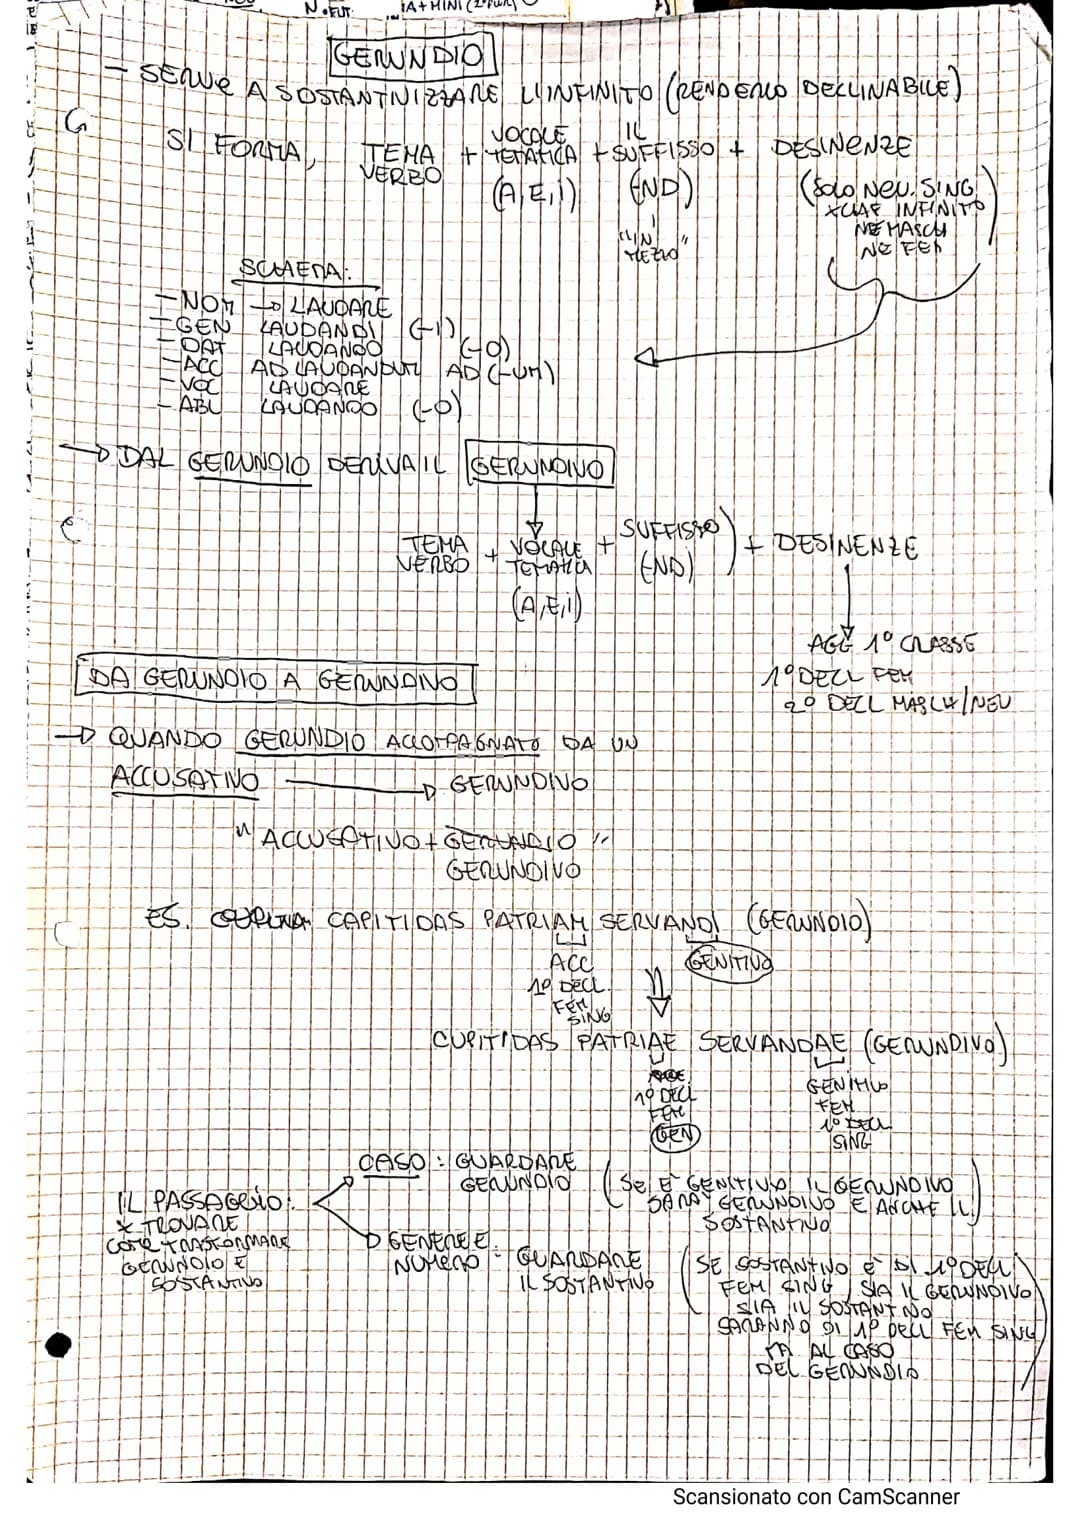 N. FUT.
GERUNDIO
- SERVE A SOSTANTIVIZZARE L'INFINITO (RENDERLO DECLINABILE)
SI FORMA, TEMA VERBO + VOCALE TEMATICA (A, E, i) + IL SUFFISSO (ND) + DESINENZE
"IN MEZZO"
(SOLO NEU. SING.
XCHE INFINITO
NE MASCH
NE FEM
SCHEMA:
- NOM → LAUDARE
- GEN LAUDANDI (-I)
- DAT LAUDANDO (-O)
- ACC AD LAUDANDUM AD (-UM)
- VOC LAUDARE
- ABL LAUDANDO (-O)
→ DAL GERUNDIO DERIVA IL GERUNDIVO
TEMA VERBO + VOCALE TEMATICA (A, E, i) + SUFFISSO (ND) + DESINENZE
AGG 1° CLASSE
1° DECL FEM
2° DECL MASCH/NEU
DA GERUNDIO A GERUNDIVO
→ QUANDO GERUNDIO ACCOMPAGNATO DA UN
ACCUSATIVO → GERUNDIVO
"ACCUSATIVO + GERUNDIO"
GERUNDIVO
ES. CAPITIDAS PATRIAM SERVANDI (GERUNDIO)
ACC
1° DECL.
FEM
SING
GENITIVO
CUPITIDAS PATRIAE SERVANDAE (GERUNDIVO)
1° DECL
FEM
GEN
GENITIVO
FEM
1° DECL
SING
IL PASSAGGIO:
X TROVARE
COME TRASFORMARE
GERUNDIO E
SOSTANTIVO
CASO: GUARDARE
GERUNDIO
(SE E' GENITIVO IL GERUNDIVO
SARA' GERUNDIVO E ANCHE IL
SOSTANTIVO)
GENERE E
NUMERO: GUARDARE
IL SOSTANTIVO
(SE SOSTANTIVO È DI 1° DECL
FEM SING, SIA IL GERUNDIVO
SIA IL SOSTANTIVO
SARANNO DI 1° DECL FEM SING
MA AL CASO
DEL GERUNDIO)
Scansionato con CamScanner